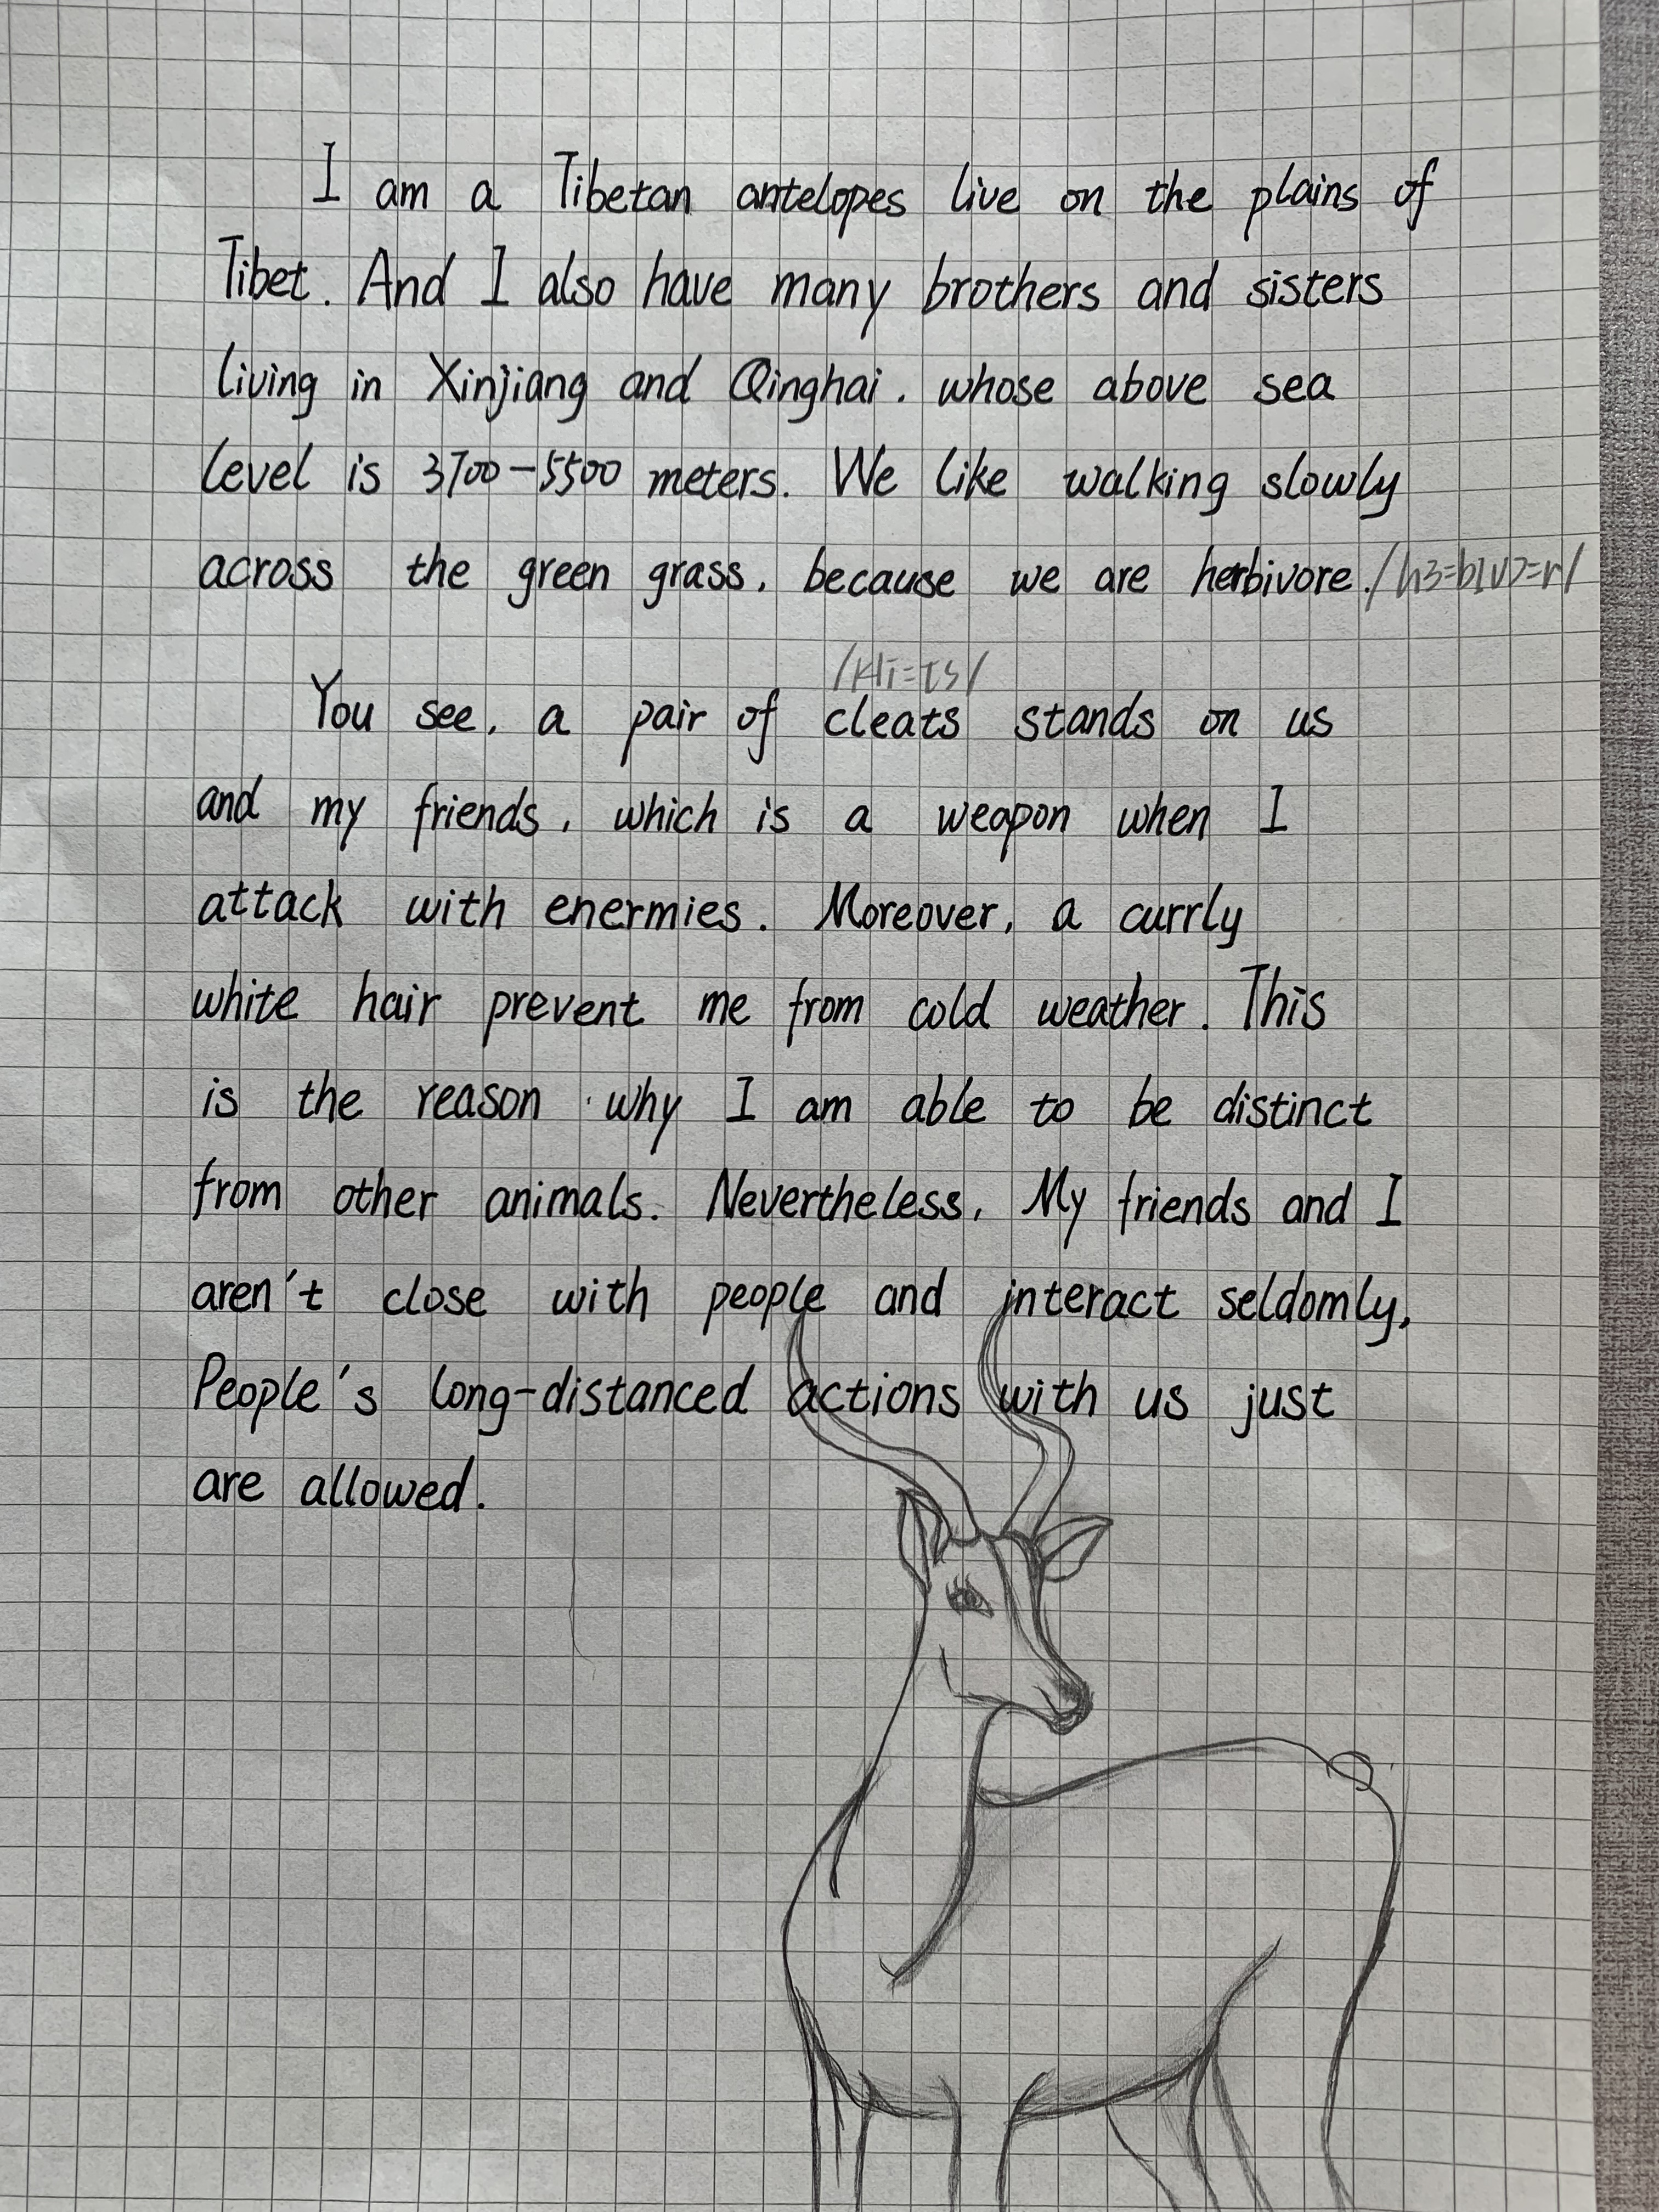 I am a Tibetan antelopes live on the plains of
Tibet. And I also have many brothers and sisters
living in Xinjiang and Qinghai, whose above sea
level is 3700-5500 meters. We like walking slowly
across the green grass, because we are herbivore. /hɜ:bɪvɔ:r/
/kli:ts/
You see, a pair of cleats stands on us
and my friends, which is a weapon when I
attack with enermies. Moreover, a currly
white hair prevent me from cold weather. This
is the reason why I am able to be distinct
from other animals. Nevertheless, My friends and I
aren't close with people and interact seldomly,
People's long-distanced actions with us just
are allowed.